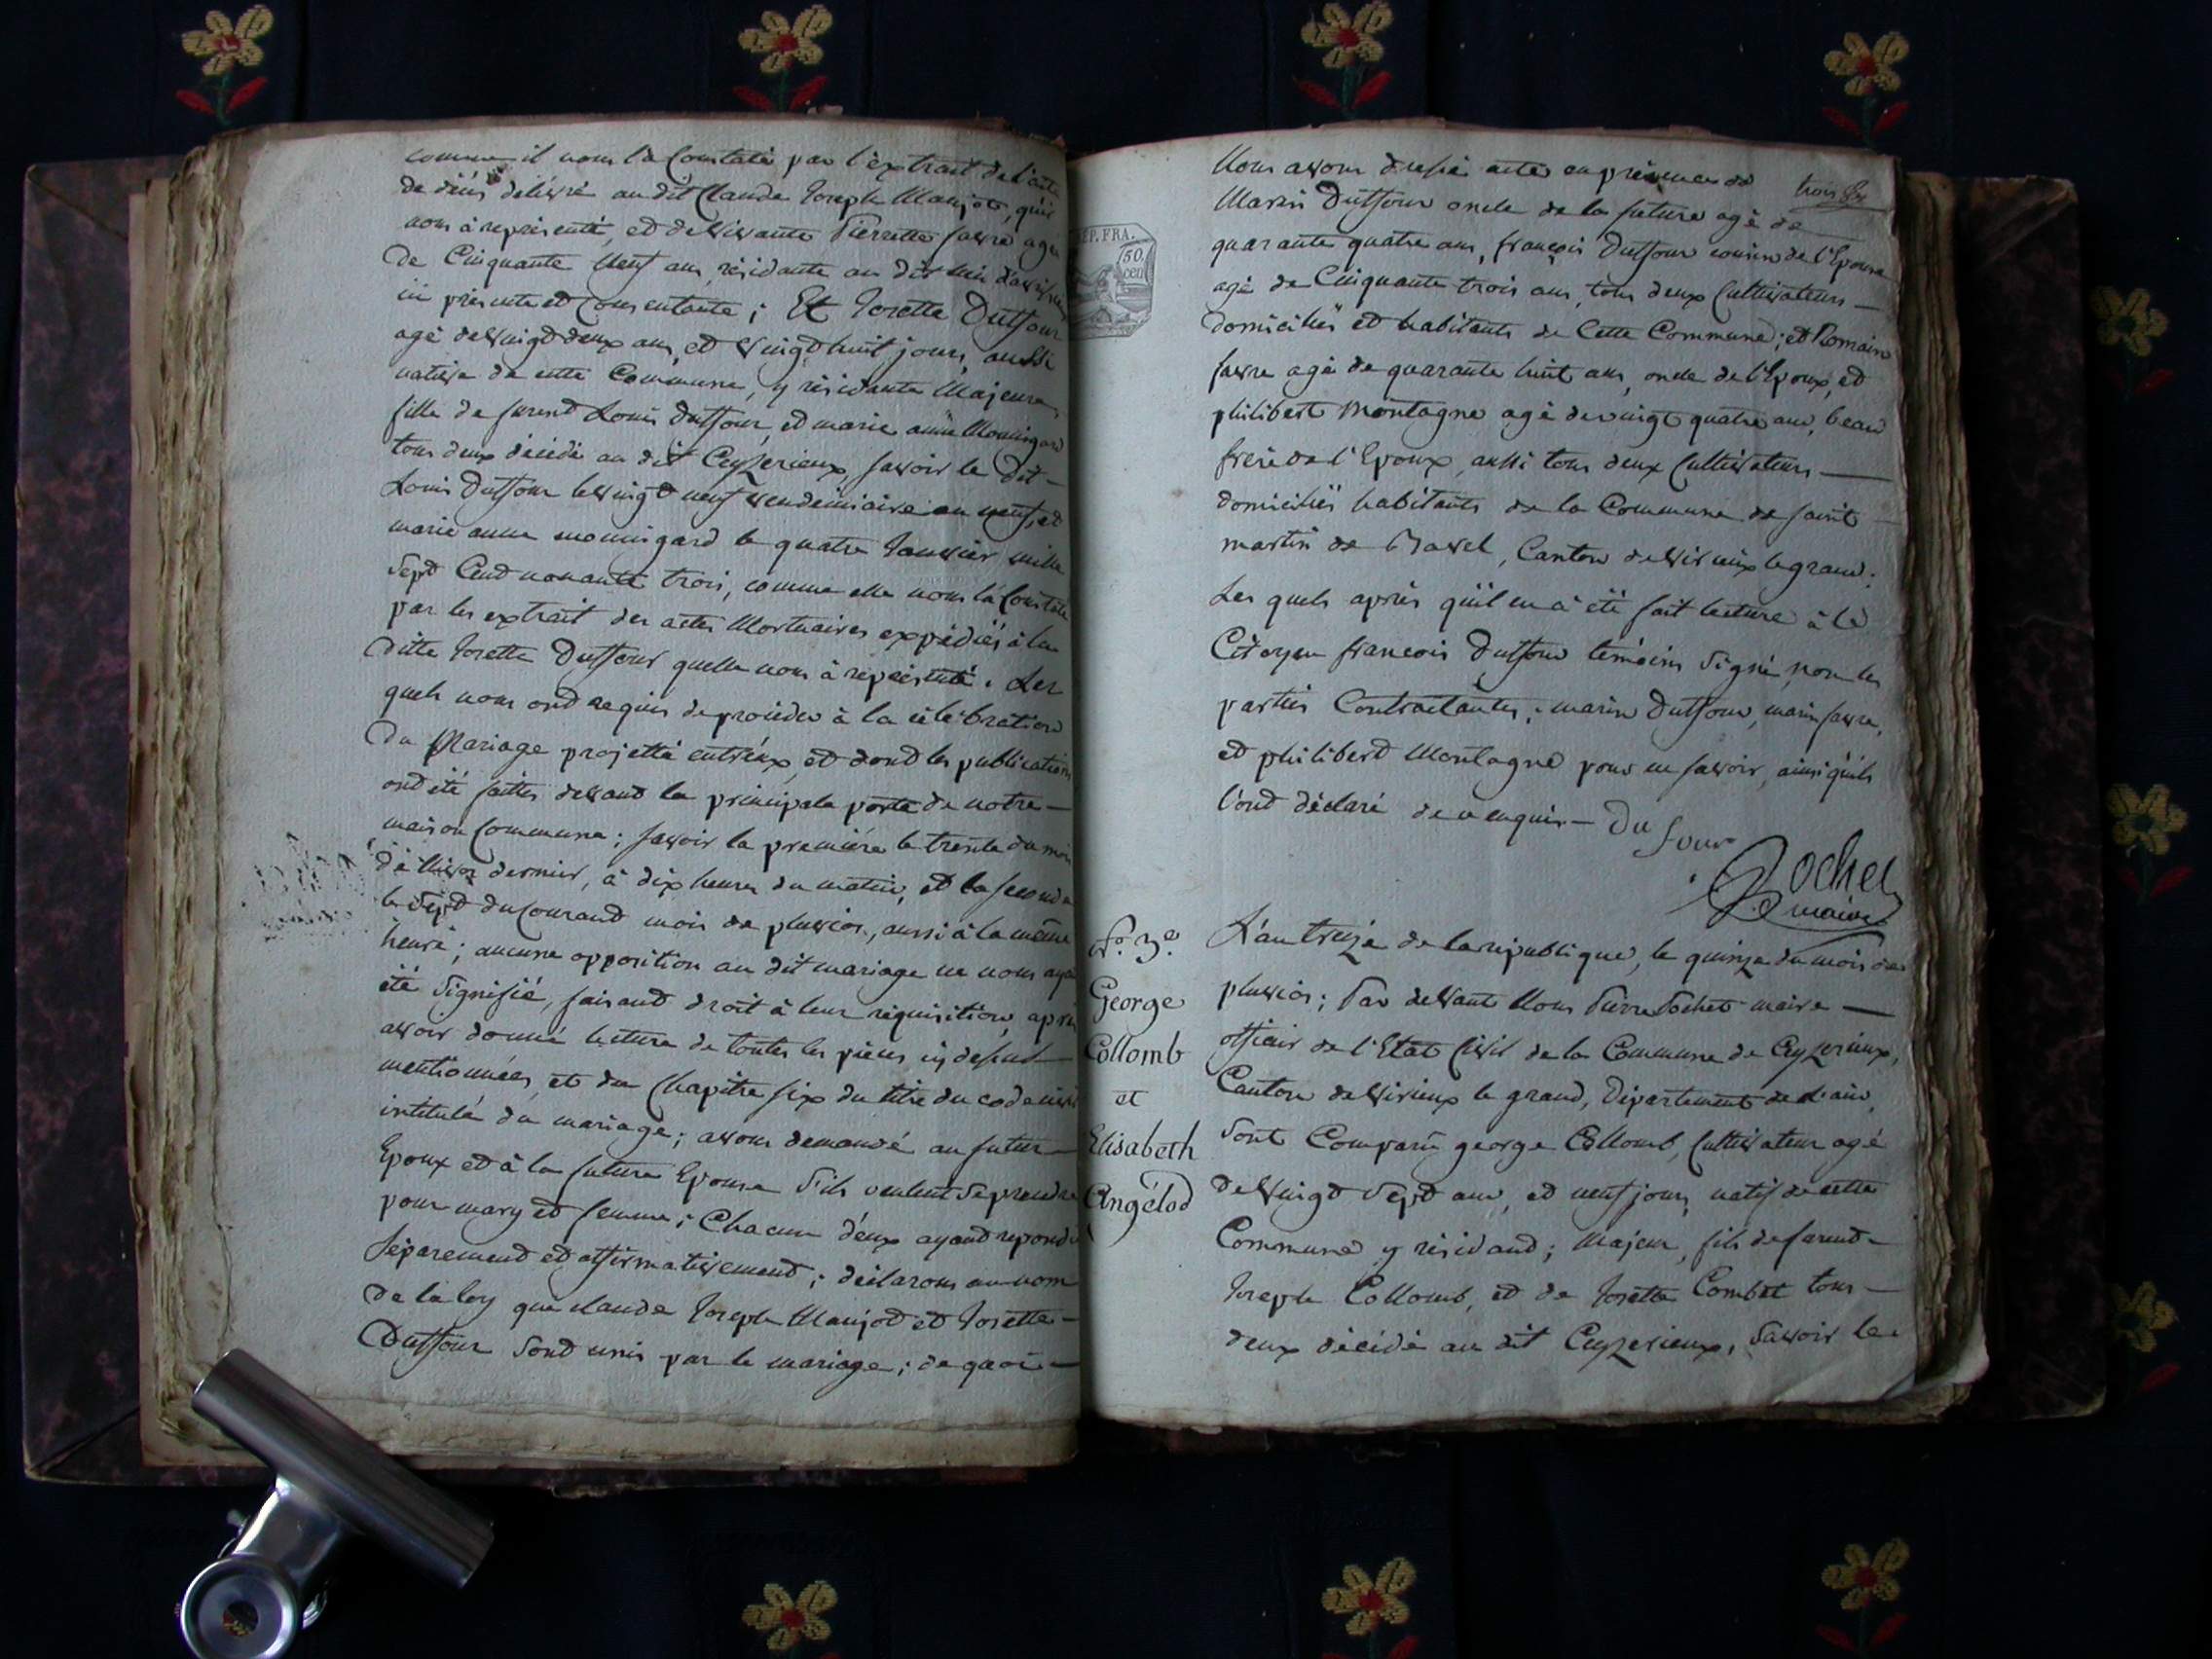 comme il nous l'a Constaté par l'extrait de l'acte
de décés délivré au dit Claude Joseph Manjot, qu'il
nous à représenté, et de vivante Pierrette favre agée
de Cinquante Neuf ans, résidante au dit lieu
ici présente et Consentante; Et Josette Duffour
agé de vingt deux ans, et vingt huit jours, aussi
native de cette Commune, y résidante Majeure,
fille de furent Louis duffour, et marie anne Mounigard
tous deux décédé au dit Ceyzerieux, savoir le dit
Louis Duffour le vingt neuf vendemiaire an neuf, et
marie anne mounigard le quatre Janvier mille
Sept Cent nonante trois, comme elle nous l'a Constaté
par les extrait des actes Mortuaires expédiés à la
ditte Josette Duffour quelle nous à représenté. Les
quels nous ont requis de proceder à la célébration
du Mariage projetté entr'eux, et dont les publications
ont été faittes devant la principale porte de notre
maison Commune; savoir la premiére le trente du mois
de Nivos dernier, à dix heures du matin, et la seconde
le Sept du Courant mois de pluvios, aussi à la même
heure; aucune opposition au dit mariage ne nous ayant
été Signifié, faisant droit à leur réquisition, aprés
avoir donné lecture de toutes les piéces cy dessus
mentionnées, et du Chapitre six du titre du code civil
intitulé du mariage; avons demandé au futur
Epoux et à la future Epouse s'ils veulent se prendre
pour mary et femme; Chacun d'eux ayant repondu
Séparement et affirmativement; déclarons au nom
de la loy que claude Joseph Manjot et Josette
Duffour Sont unis par le mariage; de quoi
trois
Nous avons dressé acte en présence de
Marin Duffour oncle de la future agé de
quarante quatre ans, françois Duffour cousin de l'Epouse
agé de Cinquante trois ans, tous deux Cultivateurs
domiciliés et habitants de Cette Commune; et Romain
favre agé de quarante huit ans, oncle de l'Epoux, et
philibert Montagne agé de vingt quatre ans, beau
frere de l'Epoux, aussi tous deux Cultivateurs
domiciliés habitants de la Commune de saint
martin de Bavel, Canton de Virieux le grand;
Les quels aprés qu'il en à été fait lecture à le
Citoyen francois Duffour témoins Signé, non les
parties Contractantes; marin Duffour, marin favre,
et philibert Montagne pour ne savoir, ainsi qu'ils
l'ont déclaré de ce enquis Du four
Rochet
maire
REP. FRA.
50
cen
No. 3e.
George
Collomb
et
Elisabeth
Angélod
L'an treize de la république, le quinze du mois de
pluvios; Par devant Nous Pierre Rochet maire
officier de l'Etat Civil de la Commune de Ceyzerieux,
Canton de Virieux le grand, Département de L'ain,
Sont Comparu george Collomb, Cultivateur agé
de Vingt Sept ans, et neuf jours, natif de cette
Commune y résidant; Majeur, fils de furent
Joseph Collomb, et de Josette Combet tous
deux décédé au dit Ceyzerieux, Savoir le